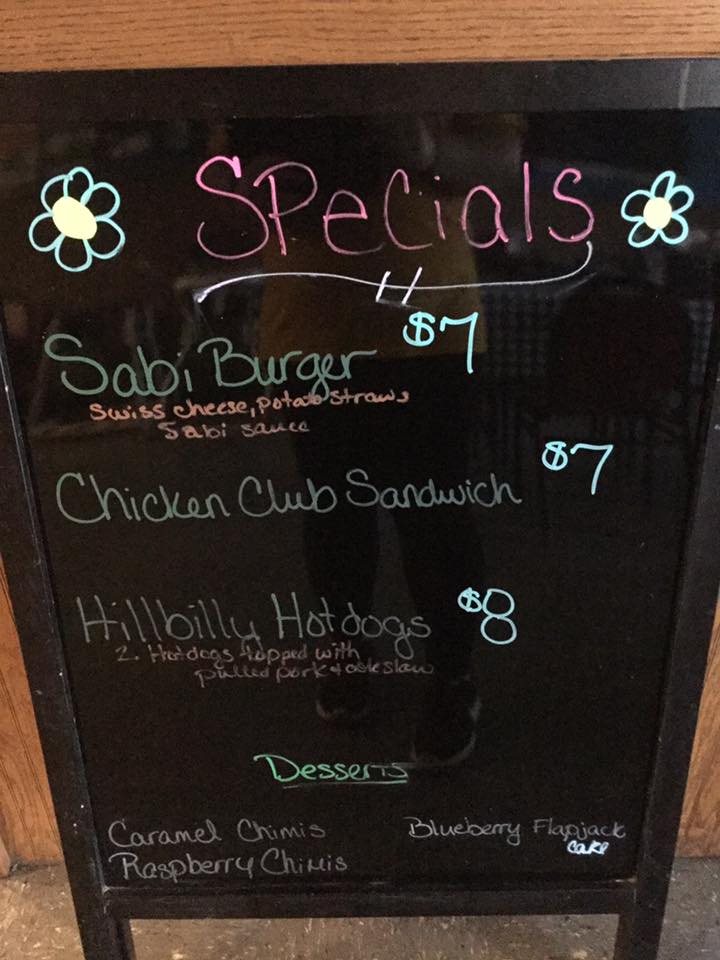 SPecials
Sabi Burger $7
Swiss cheese, potato straws
Sabi sauce
Chicken Club Sandwich $7
Hillbilly Hotdogs $8
2. Hotdogs topped with
pulled pork + coleslaw
Desserts
Caramel Chimis Blueberry Flapjack
cake
Raspberry Chimis